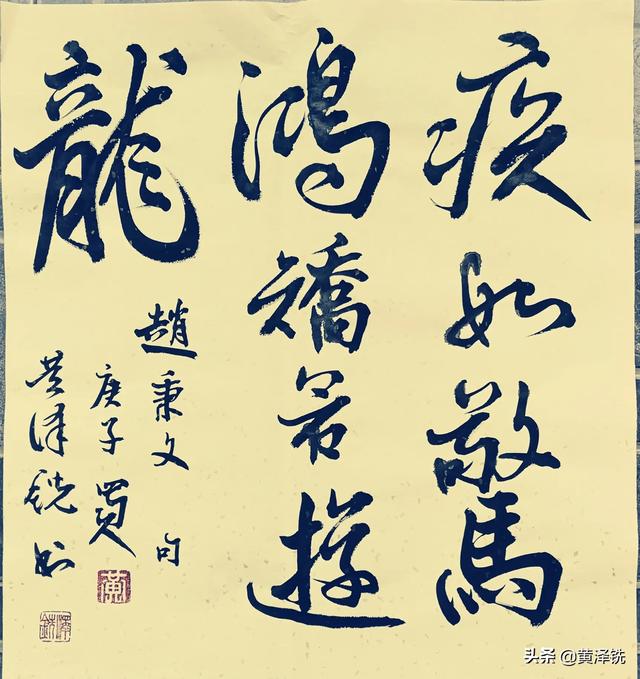 疾如驚
鴻矯若遊
龍
趙秉文句
庚子夏
黄泽铣书
黃
澤銑
头条 @黄泽铣